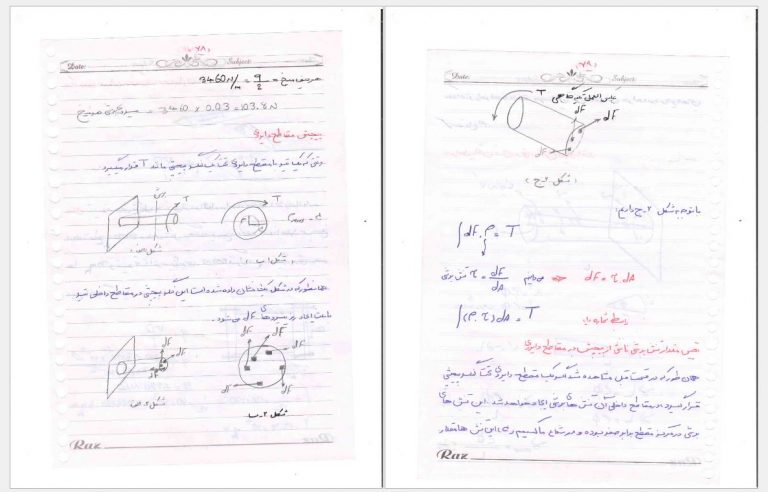 (۷۸)
Date:
Subject:
هر میخ = q/2 = 3460 N/m
3460 × 0.03 = 103.8 N
پیچش مقاطع دایروی
وقتی که یک تیر با مقطع دایروی تحت یک گشتاور پیچشی مانند T قرار میگیرد
T
T
شکل ۱-الف
شکل ۱-ب
همانطور که در شکل نشان داده شده است این گشتاور پیچشی در مقاطع داخلی تیر
باعث ایجاد زیر نیروهای dF می شود.
dF
dF
dF
dF
dF
dF
dF
شکل ۲-الف
شکل ۲-ب
Raz
(۷۸)
Date:
Subject:
عکس العمل تکیه گاهی
T
dF
dF
dF
(شکل ۲-ج)
با توجه به شکل ۲-ج داریم:
∫dF.ρ = T
تنش برشی τ = dF/dA می دانیم ⇒ dF = τ.dA
∫(ρ.τ)dA = T رابطه شماره ۱
تعیین مقدار تنش برشی ناشی از پیچش در مقاطع دایروی
همان طور که در قسمت قبل مشاهده شد اگر یک مقطع دایروی تحت گشتاور پیچشی
قرار گیرد در مقاطع داخلی آن تنش های برشی ایجاد خواهد شد. این تنش های
برشی در مرکز مقطع برابر صفر بوده و در شعاع ماکسیمم این تنش ها مقدار
Raz